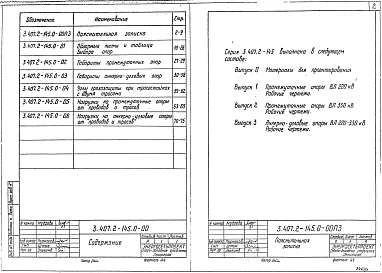 Обозначение
Наименование
Стр.
3.407.2-145.0-00ПЗ
Пояснительная записка
2-9
3.407.2-145.0-01
Обзорные листы и таблица
выбора опор
3.407.2-145.0-02
Габариты промежуточных опор
3.407.2-145.0-03
Габариты анкерно-угловых опор
3.407.2-145.0-04
Зоны грозозащиты при тросостойках
с двумя тросами
3.407.2-145.0-05
Нагрузки на промежуточные опоры
от проводов и тросов
3.407.2-145.0-06
Нагрузки на анкерно-угловые опоры
от проводов и тросов
3.407.2-145.0-00
Содержание
Стадия Лист Листов
ЭНЕРГОСЕТЬПРОЕКТ
Формат А4
2
Серия 3.407.2-145 выполнена в следующем
составе:
Выпуск 0 Материалы для проектирования
Выпуск 1 Промежуточные опоры ВЛ 220 кВ
Рабочие чертежи.
Выпуск 2 Промежуточные опоры ВЛ 330 кВ
Рабочие чертежи.
Выпуск 3 Анкерно-угловые опоры ВЛ 220-330 кВ
Рабочие чертежи.
3.407.2-145.0-00ПЗ
Пояснительная
записка
Стадия Лист Листов
ЭНЕРГОСЕТЬПРОЕКТ
Формат А4